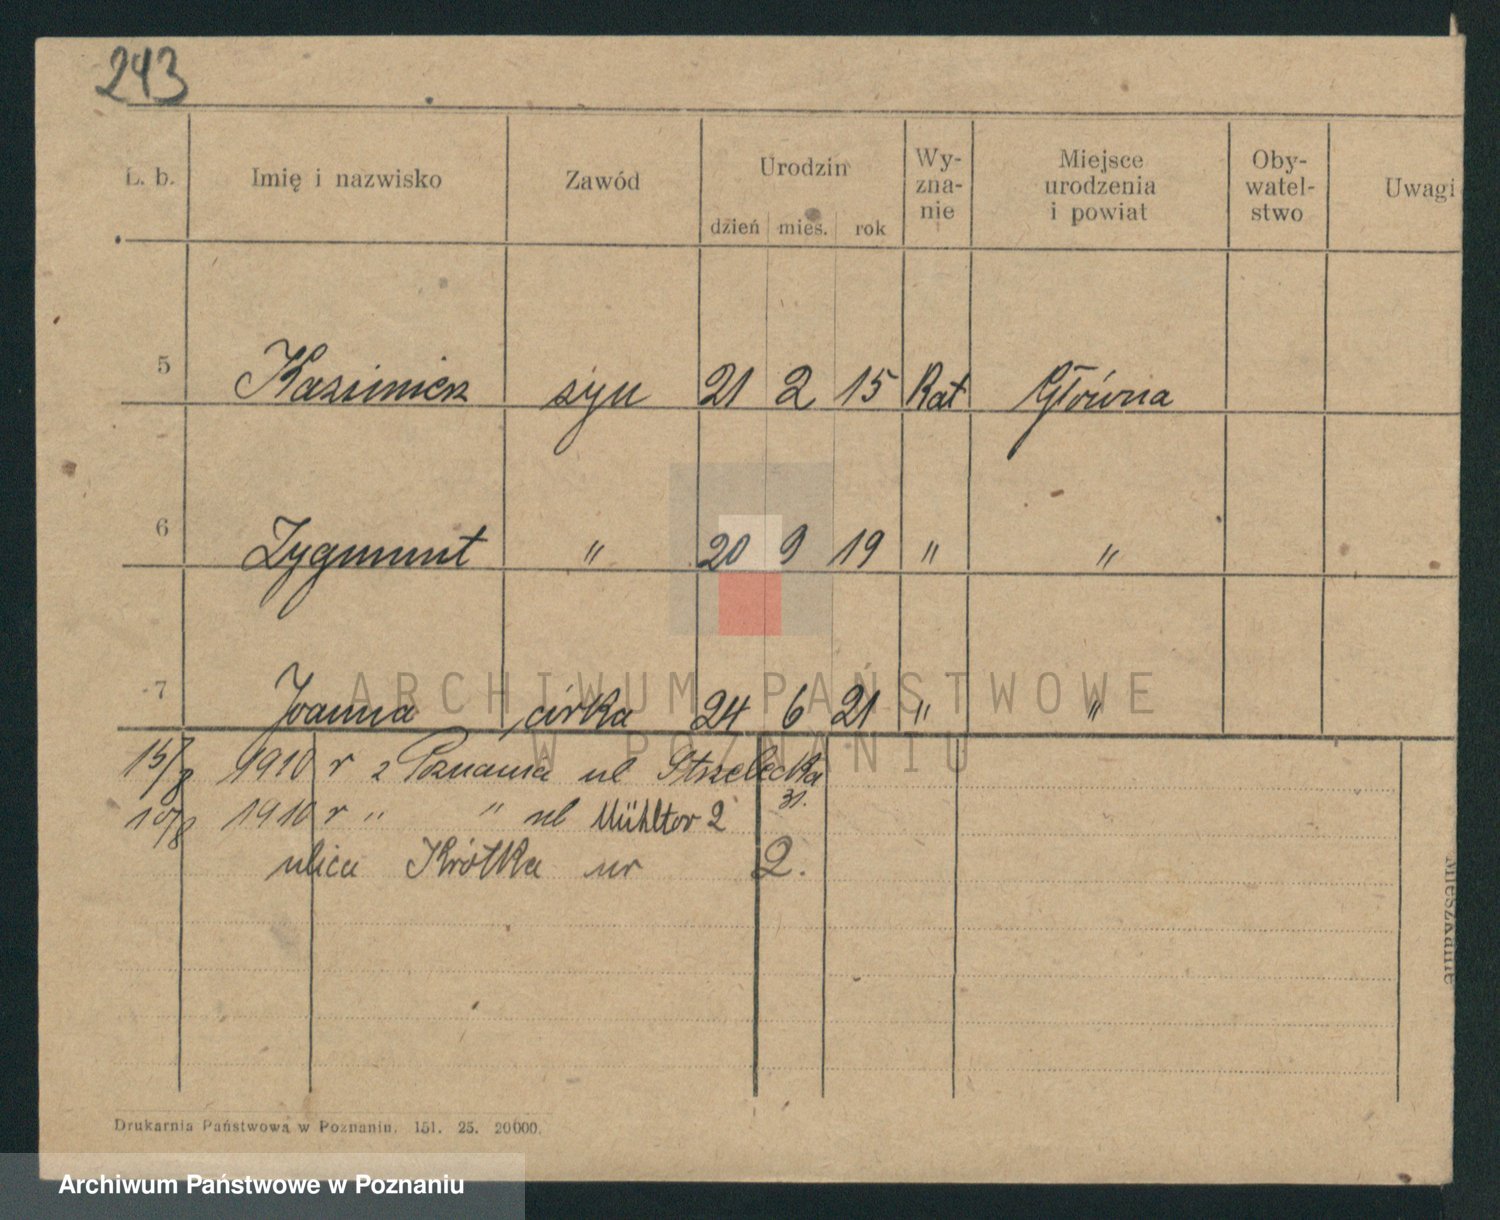 243
L. b. Imię i nazwisko Zawód Urodzin dzień mies. rok Wy-zna-nie Miejsce urodzenia i powiat Oby-watel-stwo Uwagi
5 Kazimierz syn 21 2 15 Kat Główna
6 Zygmunt " 20 9 19 " "
7 Joanna córka 24 6 21 " "
ARCHIWUM PAŃSTWOWE
W POZNANIU
15/8 1910 r z Poznania ul Strzelecka 31.
10/8 1910 r " " ul Mühltor 2
ulica Krótka nr 2.
Mieszkanie
Drukarnia Państwowa w Poznaniu. 151. 25. 20000.
Archiwum Państwowe w Poznaniu